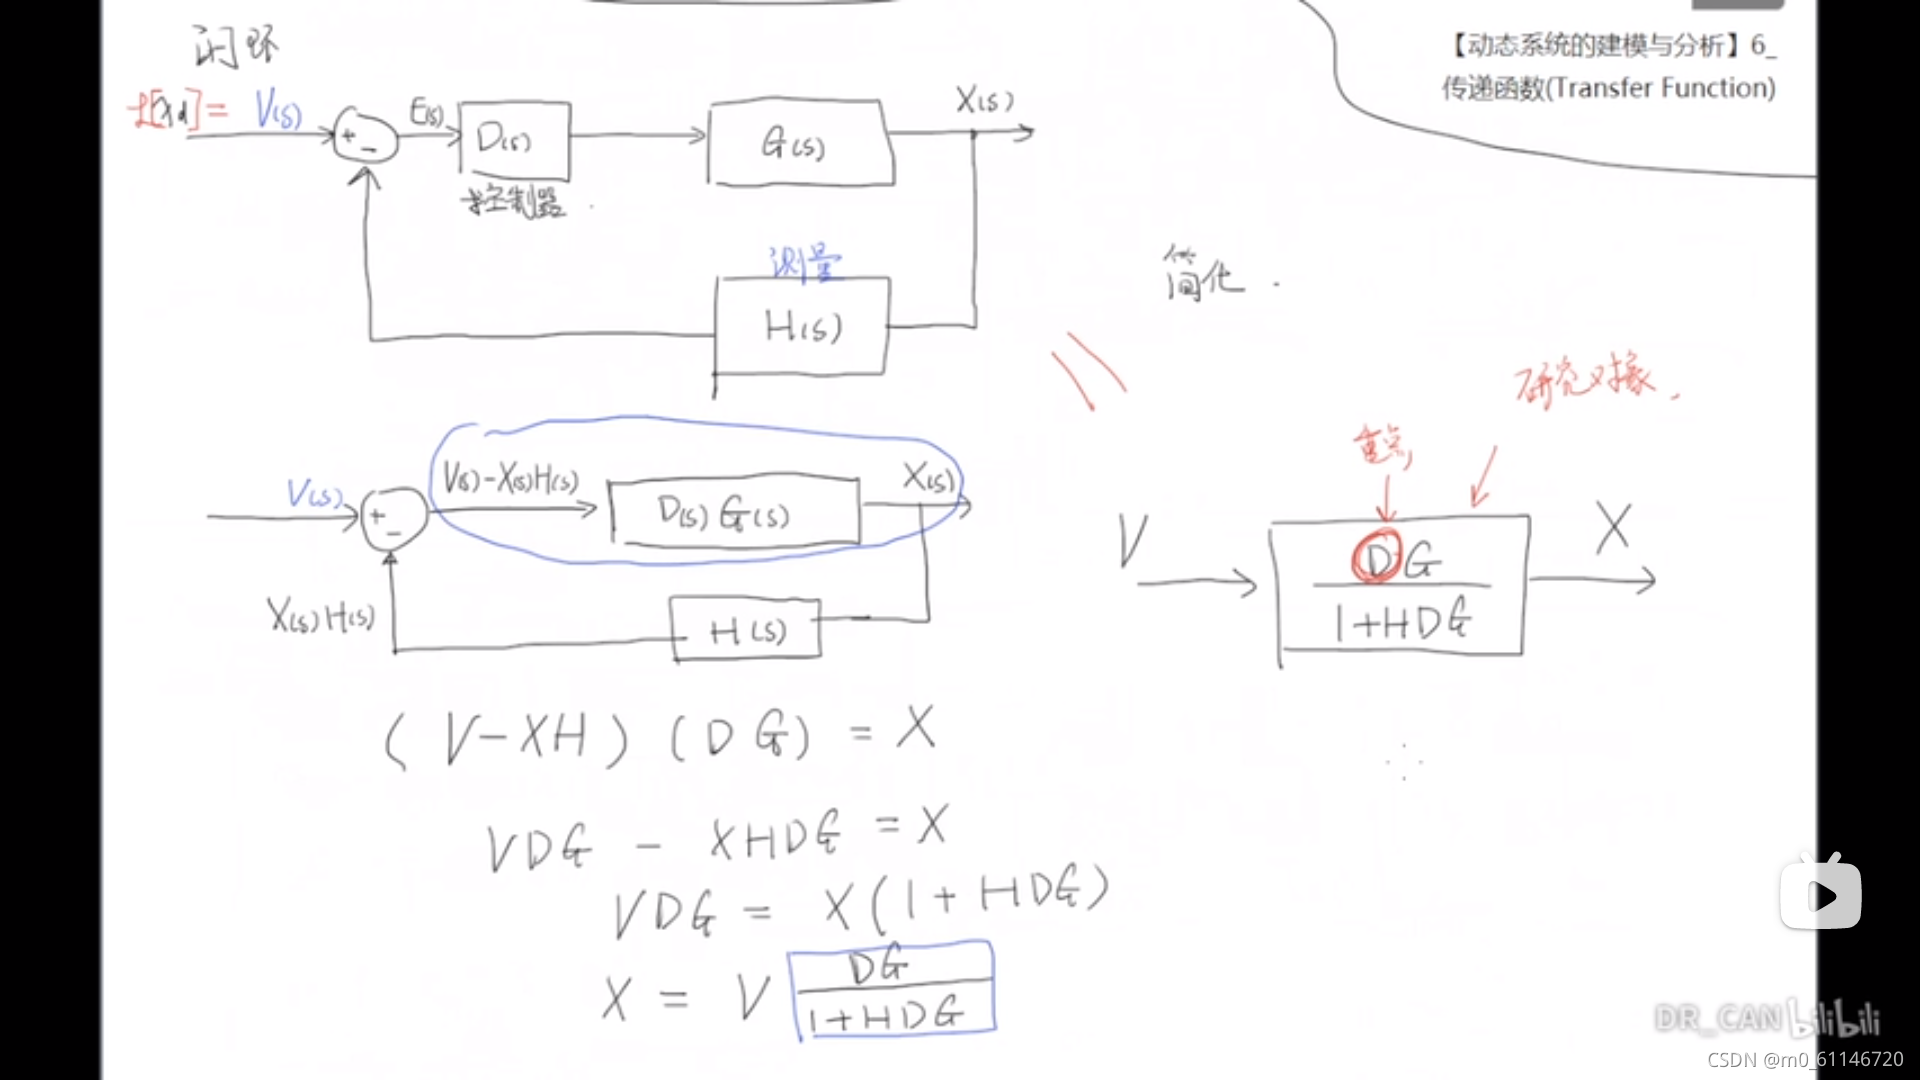 【动态系统的建模与分析】6_
传递函数(Transfer Function)
闭环
[xd] = V(s)
+
−
E(s)
D(s)
控制器
G(s)
X(s)
测量
H(s)
简化.
V(s)
+
−
V(s)-X(s)H(s)
D(s) G(s)
X(s)
X(s)H(s)
H(s)
研究对象.
重点,
V
DG
1+HDG
X
(V-XH)(DG) = X
VDG - XHDG = X
VDG = X(1+HDG)
X = V DG
1+HDG
DR_CAN bilibili
CSDN @m0_61146720